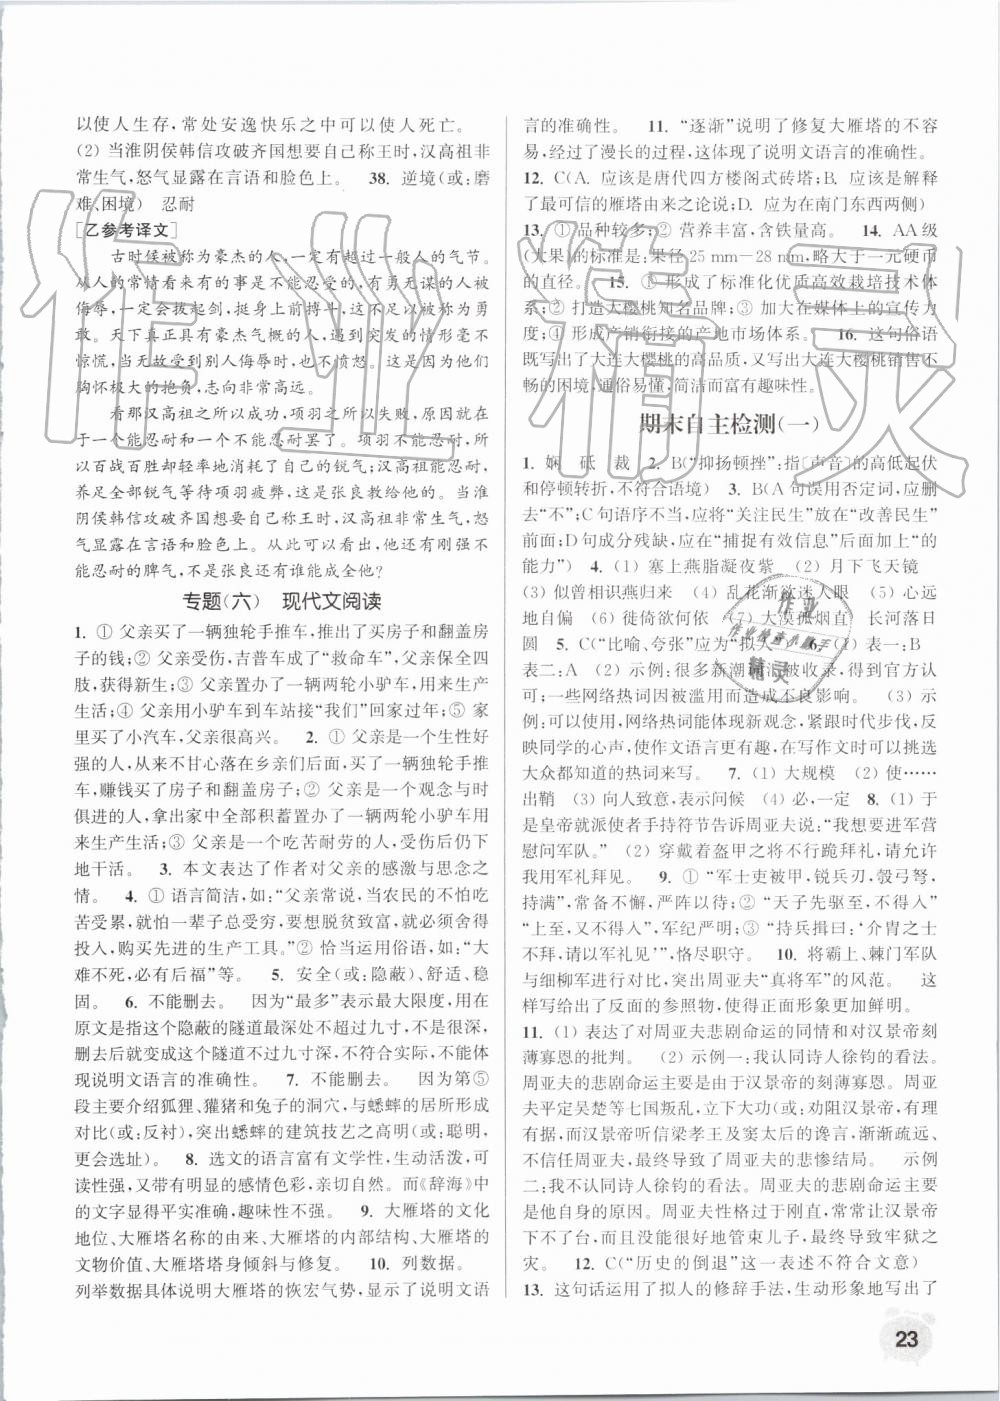 以使人生存,常处安逸快乐之中可以使人死亡。
(2) 当淮阴侯韩信攻破齐国想要自己称王时,汉高祖非
常生气,怒气显露在言语和脸色上。 38. 逆境(或:磨
难、困境) 忍耐
[乙参考译文]
古时候被称为豪杰的人,一定有超人的气节。
从人的常情来说有的事是不能忍受的。一般的人被
侮辱,一定会拔起剑,挺身上前搏斗,这不足以被称为勇
敢。天下真正具有豪杰气概的人,遇到突发的情形毫不
惊慌,当无故受到别人侮辱时,也不愤怒。这是因为他们
胸怀极大的抱负,志向非常高远。
看那汉高祖之所以成功,项羽之所以失败,原因就
在于一个能忍耐和一个不能忍耐罢了。项羽不能忍耐,
所以百战百胜却轻率地消耗自己的锐气;汉高祖能忍耐,
养足全部锐气等待项羽疲弊,这是张良教给他的。当淮
阴侯韩信攻破齐国想要自己称王时,汉高祖非常生气,怒
气显露在言语和脸色上。从此可以看出,他还有刚强不
能忍耐的脾气,不是张良还有谁能成全他?
专题(六) 现代文阅读
1. ① 父亲买了一辆独轮手推车,推出了买房子和翻盖房
子的钱;② 父亲受伤,吉普车成了“救命车”,父亲保全四
肢,获得新生;③ 父亲置办了一辆两轮小驴车,用来生产
生活;④ 父亲用小驴车到车站接“我们”回家过年;⑤ 家
里买了小汽车,父亲很高兴。 2. ① 父亲是一个生性好
强的人,从来不甘心落在乡亲们后面,他买来独轮手推
车,赚钱买了房子和翻盖房子;② 父亲是一个观念与时
俱进的人,拿出家中全部积蓄置办了一辆两轮小驴车用
来生产生活;③ 父亲是一个吃苦耐劳的人,受伤后仍下
地干活。 3. 本文表达了作者对父亲的感激与思念之
情。 4. ① 语言简洁,如:“父亲常说,当农民的不怕吃
苦受累,就怕一辈子总受穷,要想脱贫致富,就必须舍得
投入,购买先进的生产工具。”② 恰当运用俗语,如:“大
难不死,必有后福”等。 5. 安全(或:隐蔽)、舒适、稳
固。 6. 不能删去。 因为“最多”表示最大限度,用在
原文是指这个隐蔽的隧道最深处不过九寸,不是很深,
删去后就变成这个隧道不过九寸深,不符合实际,不能体
现说明文语言的准确性。 7. 不能删去。 因为第⑤
段主要介绍狐狸、獾猪和兔子的洞穴,与蟋蟀的居所形成
对比(或:反衬),突出蟋蟀的建筑技艺之高明(或:聪明,
更会选址)。 8. 选文的语言富有文学性,生动活泼,可
读性强,又带有明显的感情色彩,亲切自然。而《辞海》中
的文字显得平实准确,趣味性不强。 9. 大雁塔的文化
地位、大雁塔名称的由来、大雁塔的内部结构、大雁塔的
文物价值、大雁塔塔身倾斜与修复。 10. 列数据。
列举数据具体说明了大雁塔的恢宏气势,显示了说明文语
言的准确性。 11. “逐渐”说明了修复大雁塔的不容
易,经过了漫长的过程,这体现了说明文语言的准确性。
12. C(A. 应该是唐代四方楼阁式砖塔;B. 应该是解释
了最可信的雁塔由来之论说;D. 应为在南门东西两侧)
13. ① 品种较多;② 营养丰富,含铁量高。 14. AA级
(大果)的标准是:果径 25 mm－28 mm,略大于一元硬币
的直径。 15. ① 形成了标准化优质高效栽培技术体
系;② 打造大樱桃知名品牌;③ 加大在媒体上的宣传力
度;④ 形成产销衔接的产地市场体系。 16. 这句俗语
既写出了大连大樱桃的高品质,又写出大连大樱桃销售不
畅的困境,通俗易懂,简洁而富有趣味性。
期末自主检测(一)
1. 娴 砥 裁 2. B(“抑扬顿挫”:指〔声音〕的高低起伏
和停顿转折,不符合语境) 3. B(A句误用否定词,应删
去“不”;C句语序不当,应将“关注民生”放在“改善民生”
前面;D句成分残缺,应在“捕捉有效信息”后面加上“的
能力”) 4. (1) 塞上燕脂凝夜紫 (2) 月下飞天镜
(3) 似曾相识燕归来 (4) 乱花渐欲迷人眼 (5) 心远
地自偏 (6) 徙倚欲何依 (7) 大漠孤烟直 长河落日
圆 5. C(“比喻、夸张”应为“拟人”) 6. (1) 表一:B
表二:A (2) 示例:很多新潮词汇被收录,得到官方认
可;一些网络热词因被滥用而造成不良影响。 (3) 示
例:可以使用,网络热词能体现新观念,紧跟时代步伐,反
映同学的心声,使作文语言更有趣,在写作文时可以挑选
大众都知道的热词来写。 7. (1) 大规模 (2) 使……
出鞘 (3) 向人致意,表示问候 (4) 必,一定 8. (1) 于
是皇帝就派使者手持符节告诉周亚夫说:“我想要进军营
慰问军队。” (2) 穿戴着盔甲之将不行跪拜礼,请允许
我用军礼拜见。 9. ① “军士吏被甲,锐兵刃,彀弓弩,
持满”,常备不懈,严阵以待;② “天子先驱至,不得入”
“上至,又不得入”,军纪严明;③ “持兵揖曰:‘介胄之士
不拜,请以军礼见’”,恪尽职守。 10. 将霸上、棘门军队
与细柳军进行对比,突出周亚夫“真将军”的风范。 这
样写给出了反面的参照物,使得正面形象更加鲜明。
11. (1) 表达了对周亚夫悲剧命运的同情和对汉景帝刻
薄寡恩的批判。 (2) 示例一:我认同诗人徐钧的看法。
周亚夫的悲剧命运主要是汉景帝的刻薄寡恩造成的。周亚
夫平定吴楚等七国叛乱,立下大功(或:劝阻汉景帝,有理
有据),而汉景帝听信梁孝王及窦太后的谗言,渐渐疏远、
不信任周亚夫,最终导致了周亚夫的悲惨结局。 示例
二:我不认同诗人徐钧的看法。周亚夫的悲剧命运主要
是他自身的原因。周亚夫性格过于刚直,常常让汉景帝
下不了台,而且他没有很好地管束儿子,最终导致了牢狱之
灾。 12. C(“历史的倒退”这一表述不符合文意)
13. 这句话运用了拟人的修辞手法,生动形象地写出了
23
作业精灵
作业
作业检查小助手
精灵